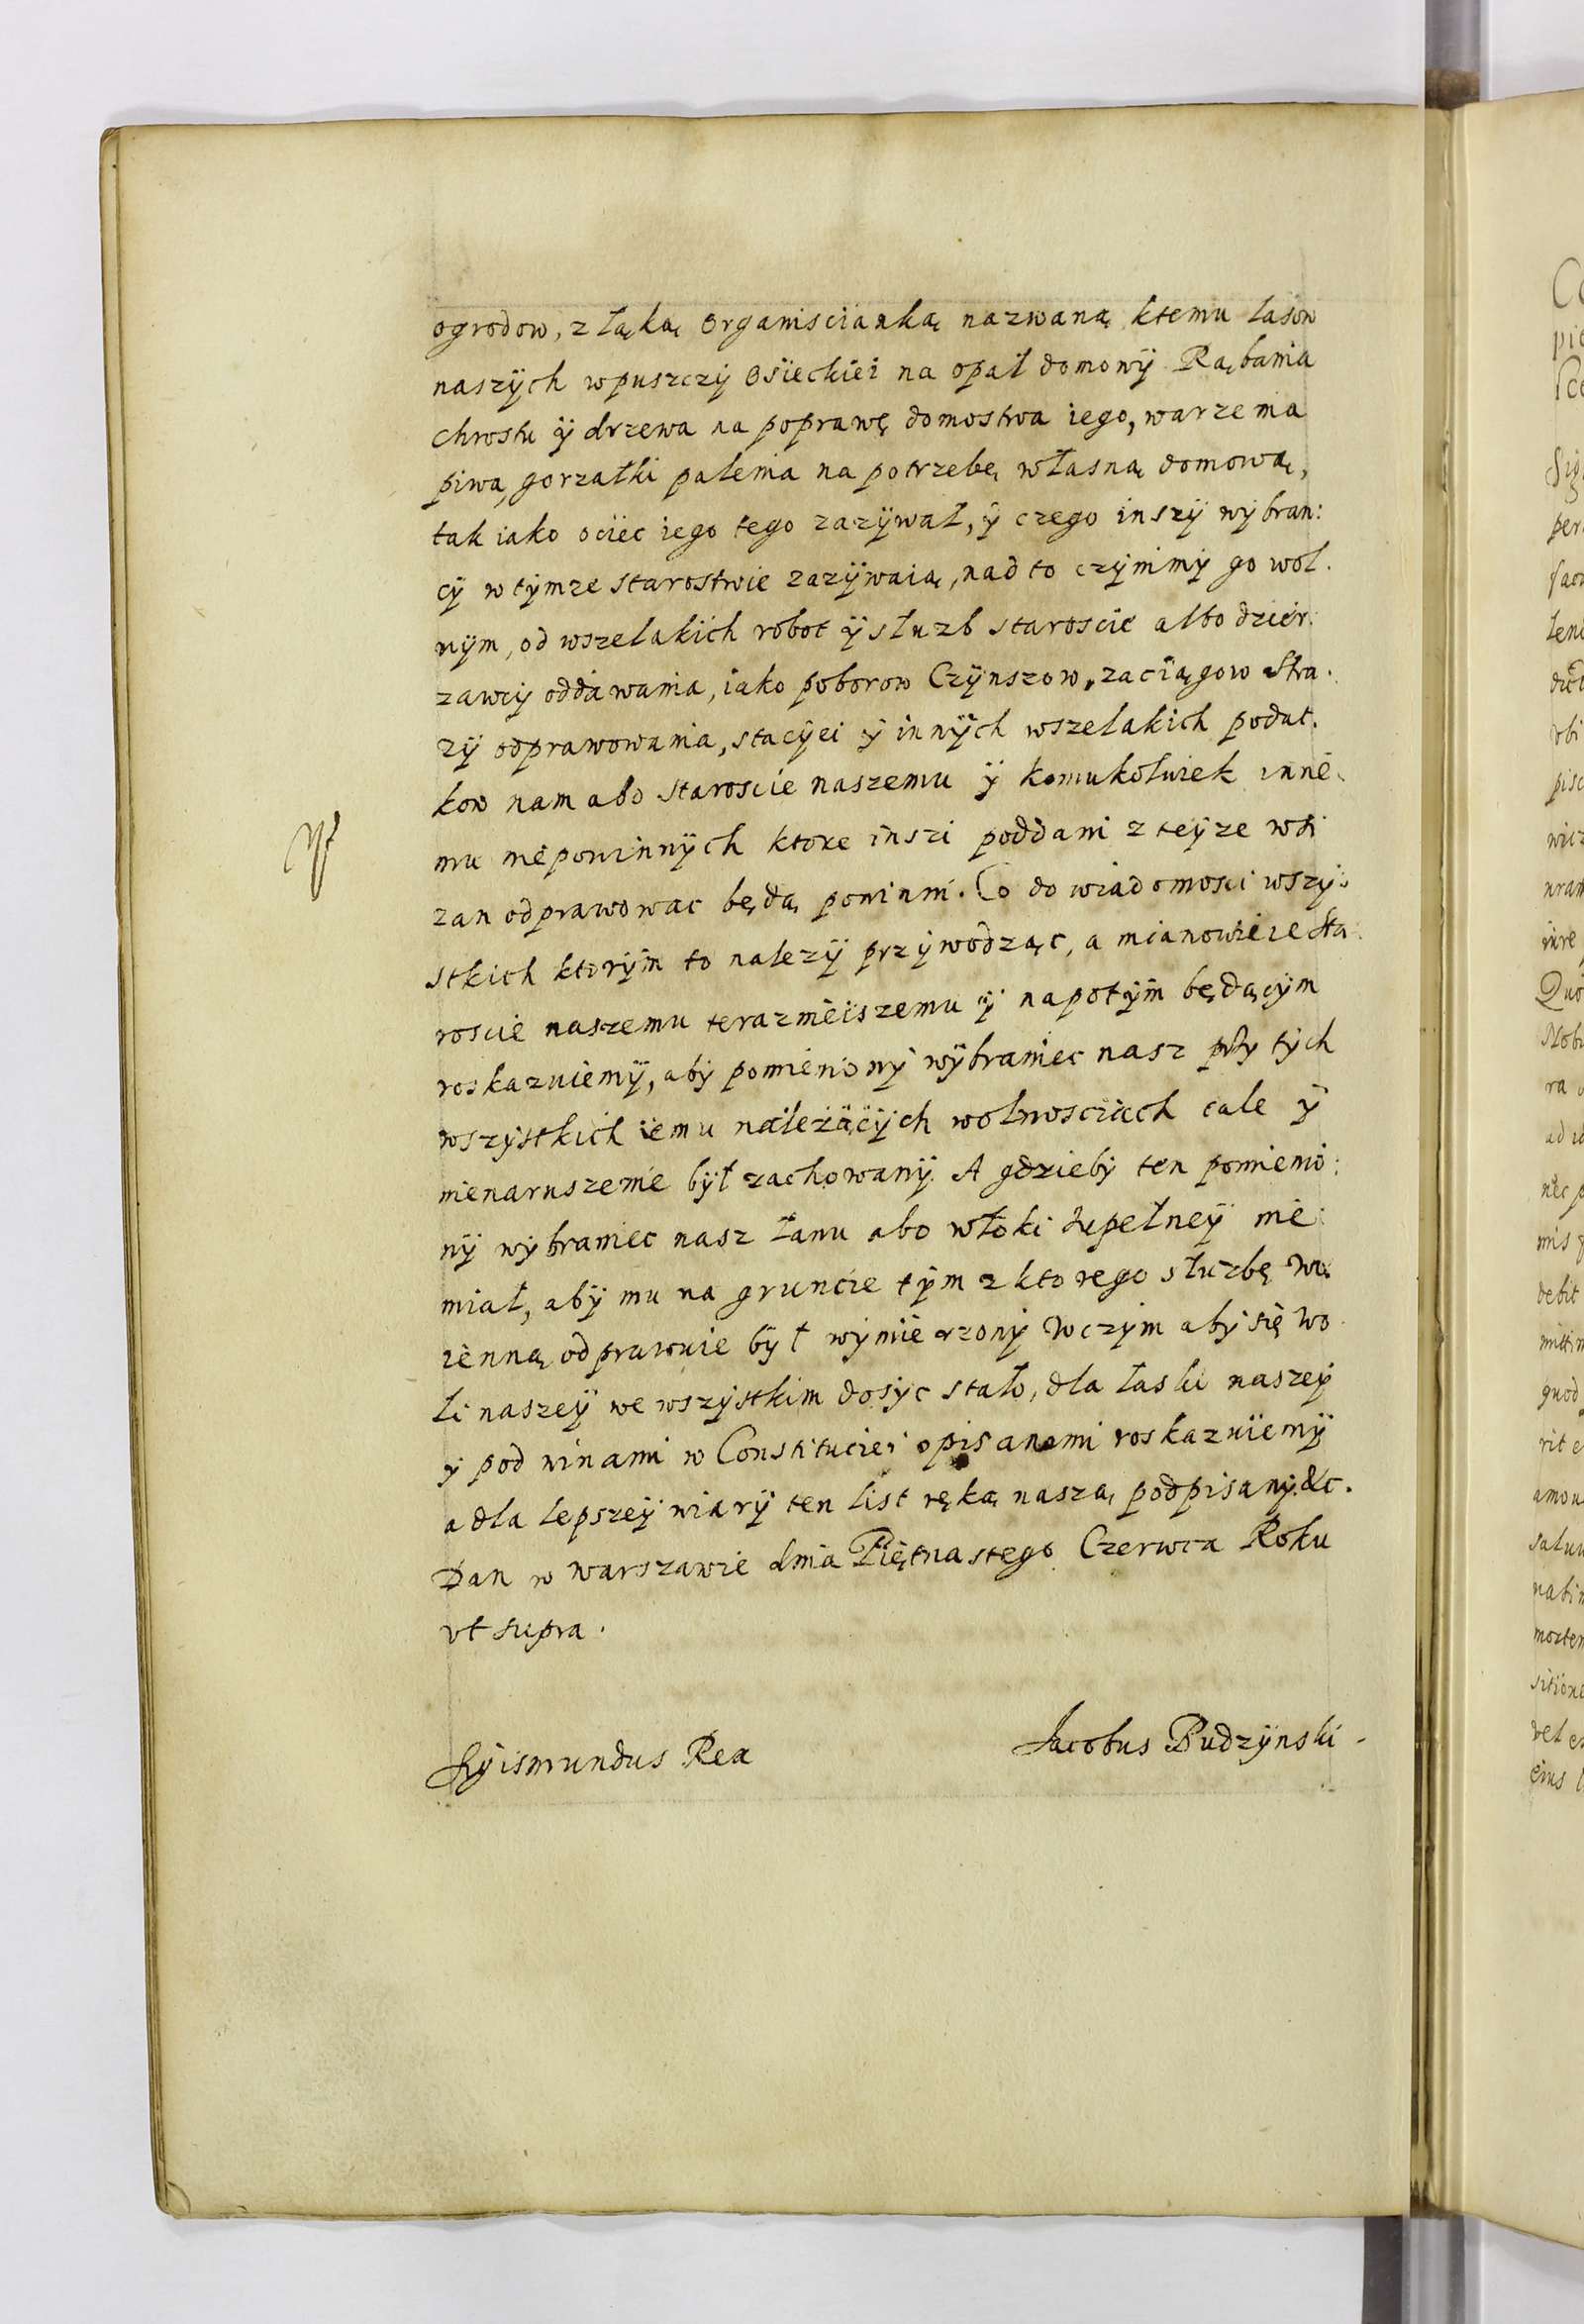 ogrodow, z łąką Organiscianką nazwaną ktemu lasow
naszÿch wpuszczÿ Osieckiei na opał domowÿ Rąbania
chrostu ÿ drzewa na poprawę domostwa iego, warzenia
piwa, gorzałki palenia na potrzebę własną domową,
tak iako ociec iego tego zazÿwał, ÿ czego inszÿ wÿbran:
cÿ w tÿmze starostwie zazÿwaią, nad to czÿnimÿ go wol.
nÿm, od wszelakich robot ÿ słuzb staroscie albo dzier:
zawcÿ oddawania, iako poborow Czÿnszow, zaciągow stra.
zÿ odprawowania, stacÿei ÿ innÿch wszelakich podat.
kow nam abo staroscie naszemu ÿ komukolwiek inne
mu niepowinnÿch ktore inszi poddani z teÿze wsi
zan odprawowac będą powinni. Co do wiadomosci wszÿ:
stkich ktorÿm to nalezÿ przÿwodząc, a mianowicie sta
roscie naszemu teraznieiszemu ÿ napotÿm będącÿm
roskazuiemÿ, abÿ pomienionÿ wÿbraniec nasz prÿ tÿch
wszÿstkich iemu należącÿch wolnosciach cale ÿ
nienaruszenie bÿł zachowanÿ. A gdziebÿ ten pomienio:
nÿ wÿbraniec nasz łanu abo włoki zupełneÿ nie
miał, abÿ mu na gruncie tÿm z ktorego służbę wo
ienną odprawuie bÿł wÿmierzonÿ w czÿm abÿ się wo
li naszeÿ we wszÿstkim dosÿc stało, dla łaski naszeÿ
ÿ pod winami w Constituciei opisanemi roskazuiemÿ
a dla lepszeÿ wiarÿ ten list ręką naszą podpisanÿ. &c.
Dan w warszawie dnia Piętnastego Czerwca Roku
vt supra.
Sÿismundus Rex
Jacobus Budzÿnski